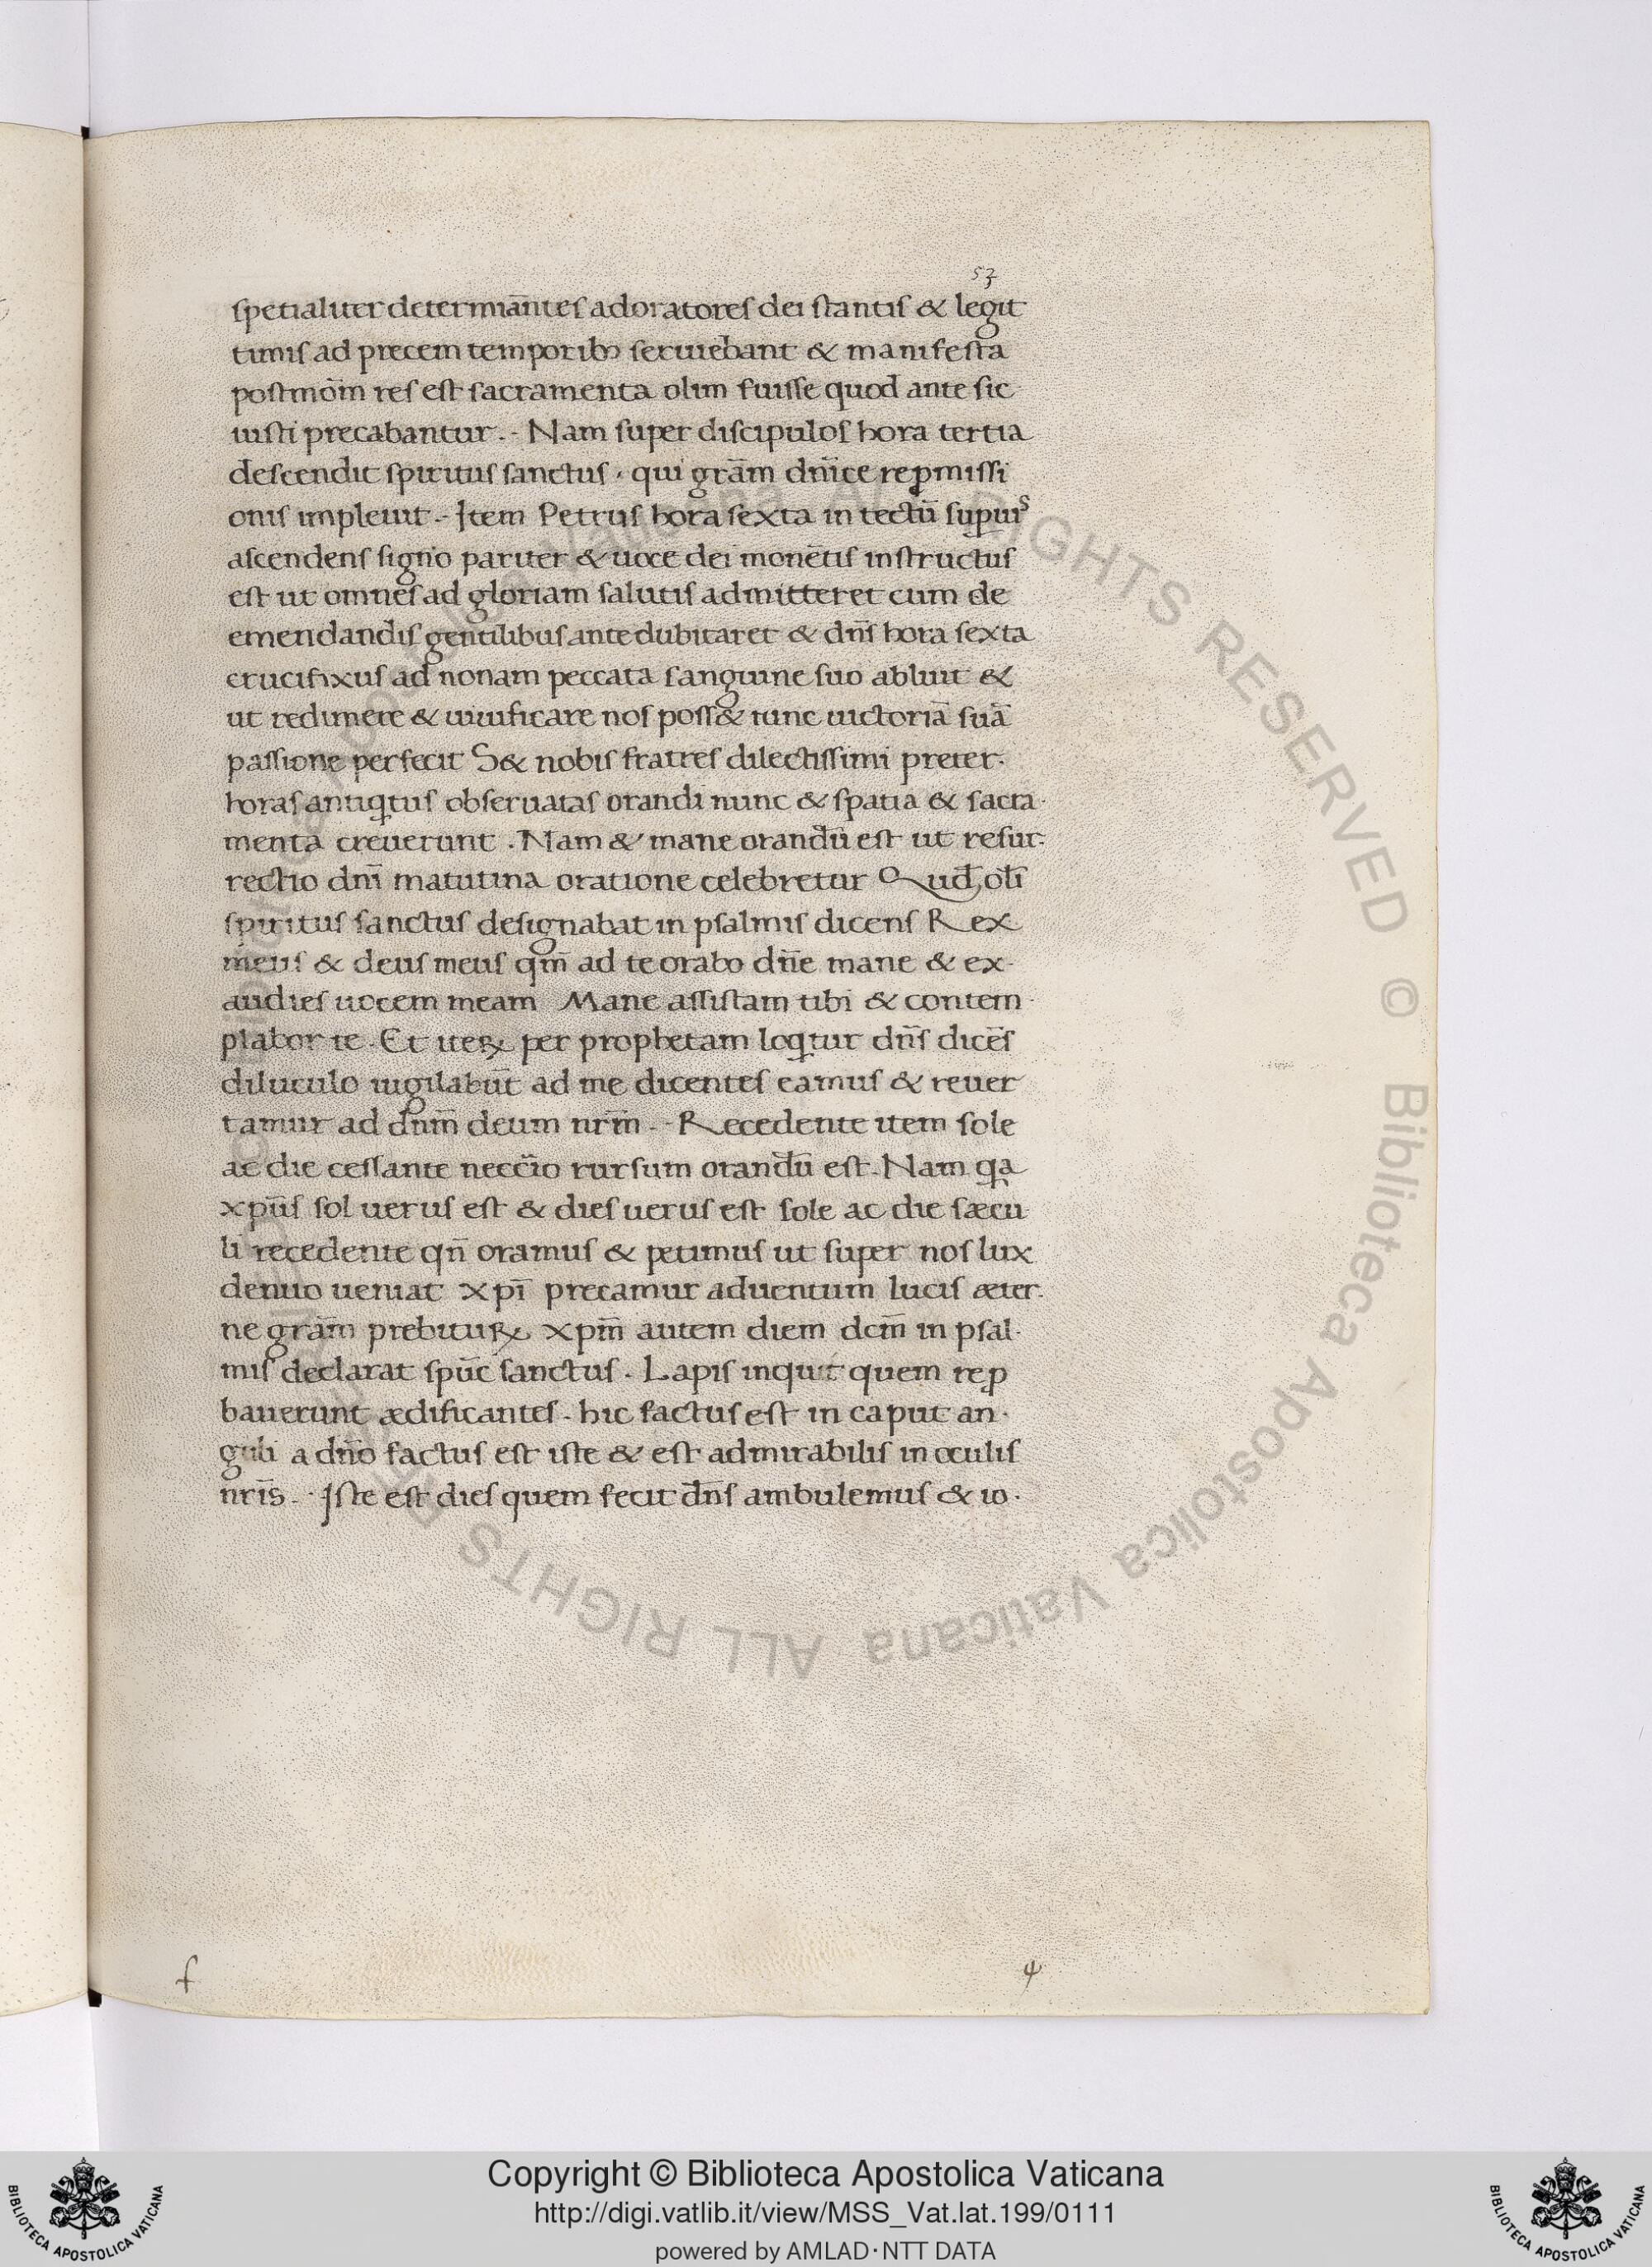 53
spetialiter determiāntes adoratores dei stantis & legit
timis ad precem temporibꝰ seruiebant & manifesta
postmōm res est sacramenta olim fuisse quod ante sic
iusti precabantur.- Nam super discipulos hora tertia
descendit spiritus sanctus · qui grām dn̄ice rep̱missi
onis impleuit.- Item Petrus hora sexta in tectū suꝑuiˢ
ascendens signo pariter & uoce dei monētis instructus
est ut omnes ad gloriam salutis admitteret cum de
emendandis gentilibus ante dubitaret & dn̄s hora sexta
crucifixus ad nonam peccata sanguine suo abluit &
ut redimere & uiuificare nos poss& tunc uictoriā suā
passione perfecit S& nobis fratres dilectissimi preter·
horas antiqͥtus obseruatas orandi nunc & spatia & sacra·
menta creuerunt . Nam & mane orandū est ut resur·
rectio dnī matutina oratione celebretur Qud̄ olī
spiritus sanctus designabat in psalmis dicens Rex
meus & deus meus qm̄ ad te orabo dn̄e mane & ex·
audies uocem meam Mane assistam tibi & contem·
plabor te . Et iteꝝ per prophetam loqͥtur dn̄s dicēs
diluculo uigilabūt ad me dicentes eamus & reuer
tamur ad dn̄m deum nrm̄ .- Recedente item sole
ac die cessante necc̄io rursum orandū est. Nam qa
xpūs sol uerus est & dies uerus est sole ac die sæcu
li recedente qn̄ oramus & petimus ut super nos lux
denuo ueniat xpī precamur aduentum lucis æter·
ne grām prebituꝝ xpm̄ autem diem dcm̄ in psal·
mis declarat spūc sanctus . Lapis inquit quem rep̱
bauerunt ædificantes . hic factus est in caput an·
guli a dn̄o factus est iste & est admirabilis in oculis
nrīs . · Iste est dies quem fecit dn̄s ambulemus & io·
f
ALL RIGHTS RESERVED © Biblioteca Apostolica Vaticana
Copyright © Biblioteca Apostolica Vaticana
http://digi.vatlib.it/view/MSS_Vat.lat.199/0111
powered by AMLAD·NTT DATA
BIBLIOTECA APOSTOLICA VATICANA
BIBLIOTECA APOSTOLICA VATICANA